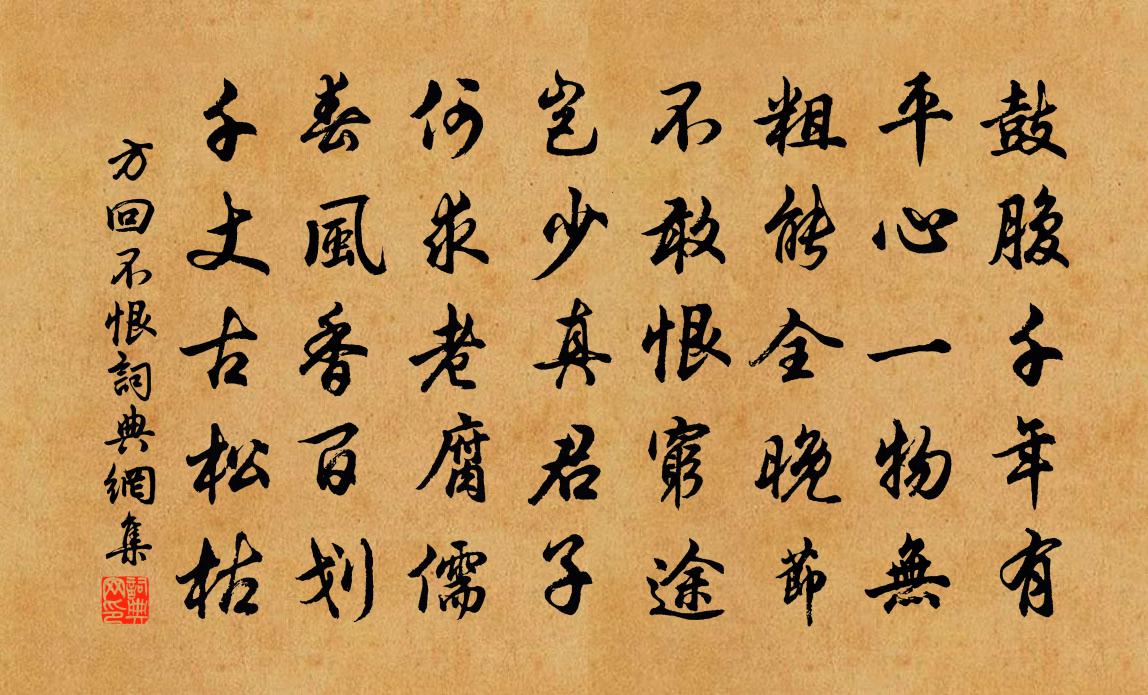 鼓腹千年有
平心一物無
粗能全晚節
不敢恨窮途
岂少真君子
何求老腐儒
春風香百划
千丈古松枯
方回不恨詞典網集
詞典网印